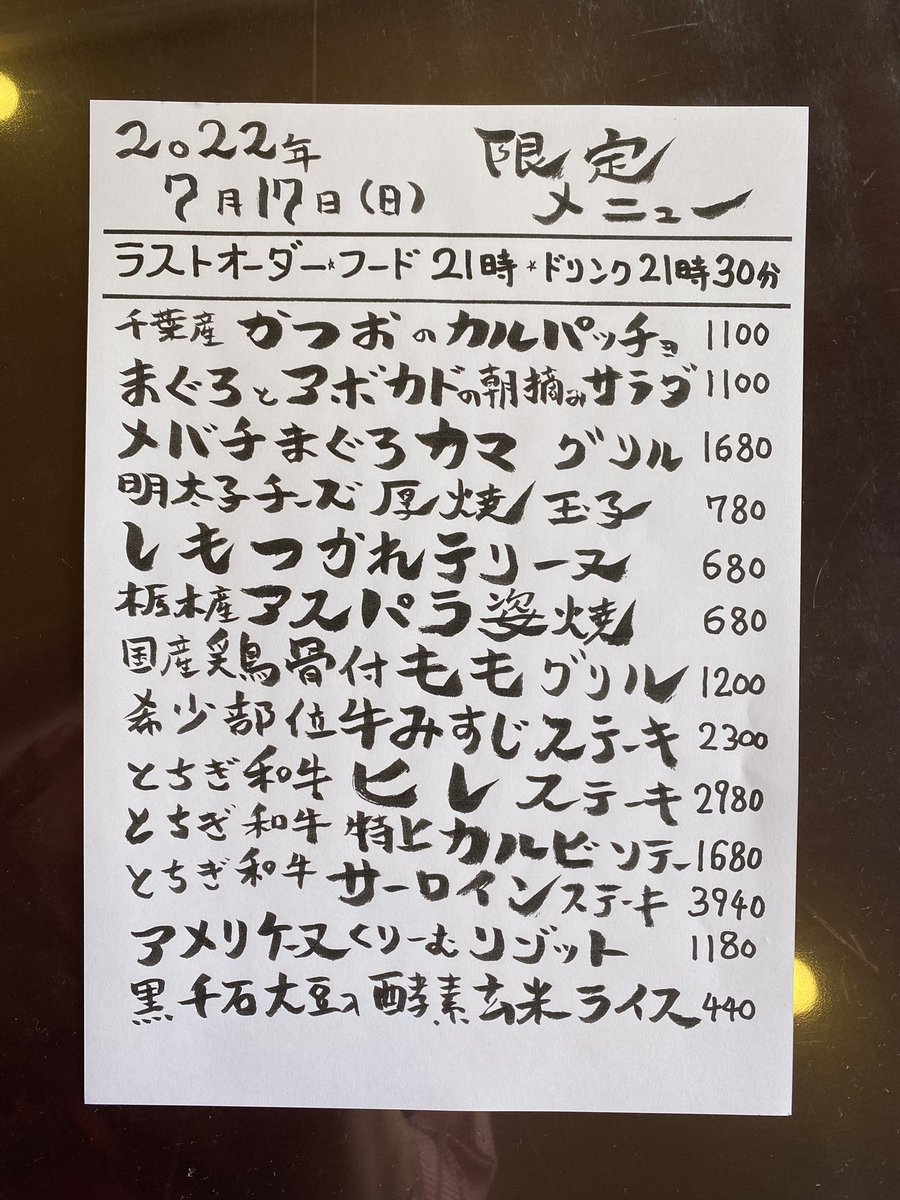 2022年 限定
7月17日(日) メニュー
ラストオーダー☆フード 21時 ☆ドリンク21時30分
千葉産 かつおのカルパッチョ 1100
まぐろとアボカドの朝摘みサラダ 1100
メバチまぐろカマ グリル 1680
明太子チーズ厚焼玉子 780
しもつかれテリーヌ 680
栃木産アスパラ姿焼 680
国産鶏骨付ももグリル 1200
希少部位牛みすじステーキ 2300
とちぎ和牛 ヒレステーキ 2980
とちぎ和牛 特上カルビソテー 1680
とちぎ和牛 サーロインステーキ 3940
アメリケーヌくりーむリゾット 1180
黒千石大豆入酵素玄米ライス 440